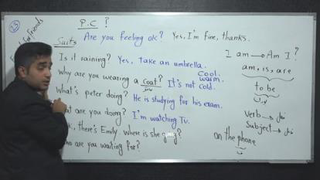 P.C?
Are you feeling ok? Yes, I'm fine, thanks.
Is it raining? Yes, take an umbrella.
Why are you wearing a coat? It's not cold.
cool.
warm.
What's peter doing? He is studying for his exam.
What are you doing? I'm watching Tv.
there's Emily. Where is she going?
Who are you waiting for?
on the phone
I am → Am I?
am, is, are
to be
verb →
Subject →